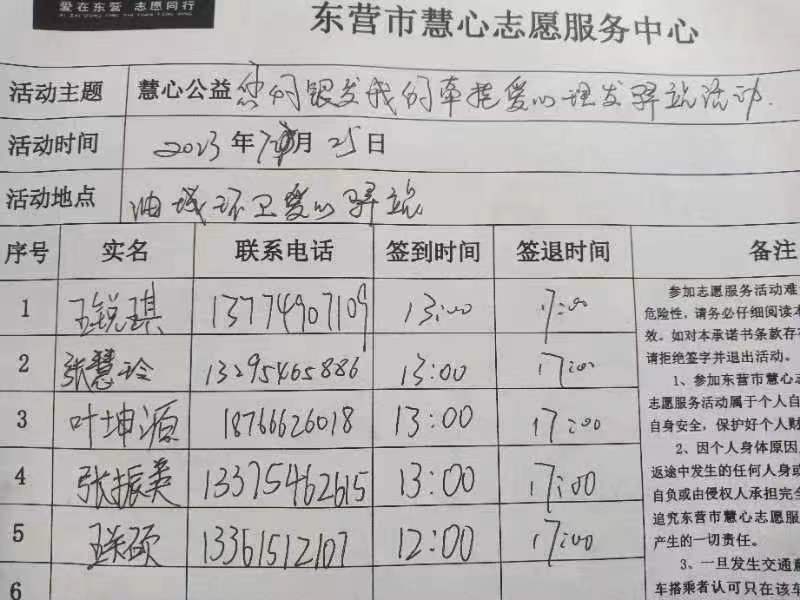 爱在东营 志愿同行
东营市慧心志愿服务中心
活动主题 慧心公益您的银发我的牵挂爱心理发驿站活动.
活动时间 2023年7月25日
活动地点 油城环卫爱心驿站
序号 实名 联系电话 签到时间 签退时间 备注
1 王锐琪 13774907109 13:00 17:00
2 张慧玲 13295465886 13:00 17:00
3 叶坤源 18766626018 13:00 17:00
4 张振英 13375462615 13:00 17:00
5 硕 13361512107 12:00 17:00
6
参加志愿服务活动难
危险性,请务必仔细阅读本
效。如对本承诺书条款存
请拒绝签字并退出活动。
1、参加东营市慧心志
愿服务活动属于个人自
自身安全,保护好个人财
2、因个人身体原因
返途中发生的任何人身或
自负或由侵权人承担完全
追究东营市慧心志愿服
产生的一切责任。
3、一旦发生交通意
车搭乘者认可只在该车